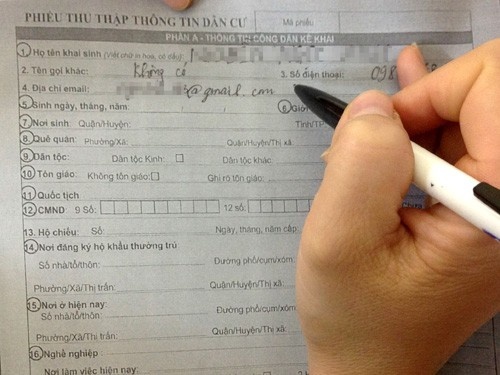 PHIẾU THU THẬP THÔNG TIN DÂN CƯ Mã phiếu
PHẦN A - THÔNG TIN CÔNG DÂN KÊ KHAI
1. Họ tên khai sinh (Viết chữ in hoa, có dấu):
2. Tên gọi khác: Không có 3. Số điện thoại: 098
4. Địa chỉ email: @gmail.com
5. Sinh ngày, tháng, năm: 6. Giới
7. Nơi sinh: Quận/Huyện: Tỉnh/TP
8. Quê quán: Phường/Xã: Quận/Huyện/Thị xã:
9. Dân tộc: Dân tộc Kinh: Dân tộc khác:
10. Tên giáo: Không tôn giáo: Ghi rõ tôn giáo:
11. Quốc tịch
12. CMND: 9 Số: 12 số:
13. Hộ chiếu: Số: Ngày, tháng, năm cấp:
14. Nơi đăng ký hộ khẩu thường trú
Số nhà/tổ/thôn: Đường phố/cụm/xóm:
Phường/Xã/Thị trấn: Quận/Huyện/Thị xã:
15. Nơi ở hiện nay:
Số nhà/tổ/thôn: Đường phố/cụm/xóm:
Phường/Xã/Thị trấn: Quận/Huyện/Thị xã:
16. Nghề nghiệp:
Nơi làm việc hiện nay: